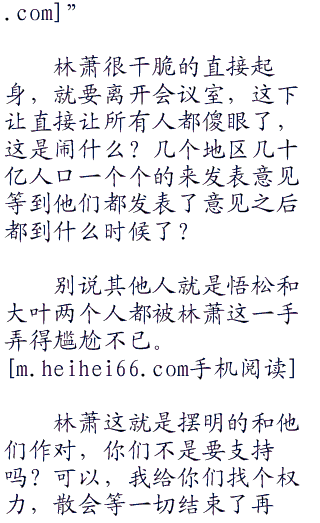 .com]”
林萧很干脆的直接起
身，就要离开会议室，这下
让直接让所有人都傻眼了，
这是闹什么？几个地区几十
亿人口一个个的来发表意见
等到他们都发表了意见之后
都到什么时候了？
别说其他人就是悟松和
大叶两个人都被林萧这一手
弄得尴尬不已。
[m.heihei66.com手机阅读]
林萧这就是摆明的和他
们作对，你们不是要支持
吗？可以，我给你们找个权
力，散会等一切结束了再